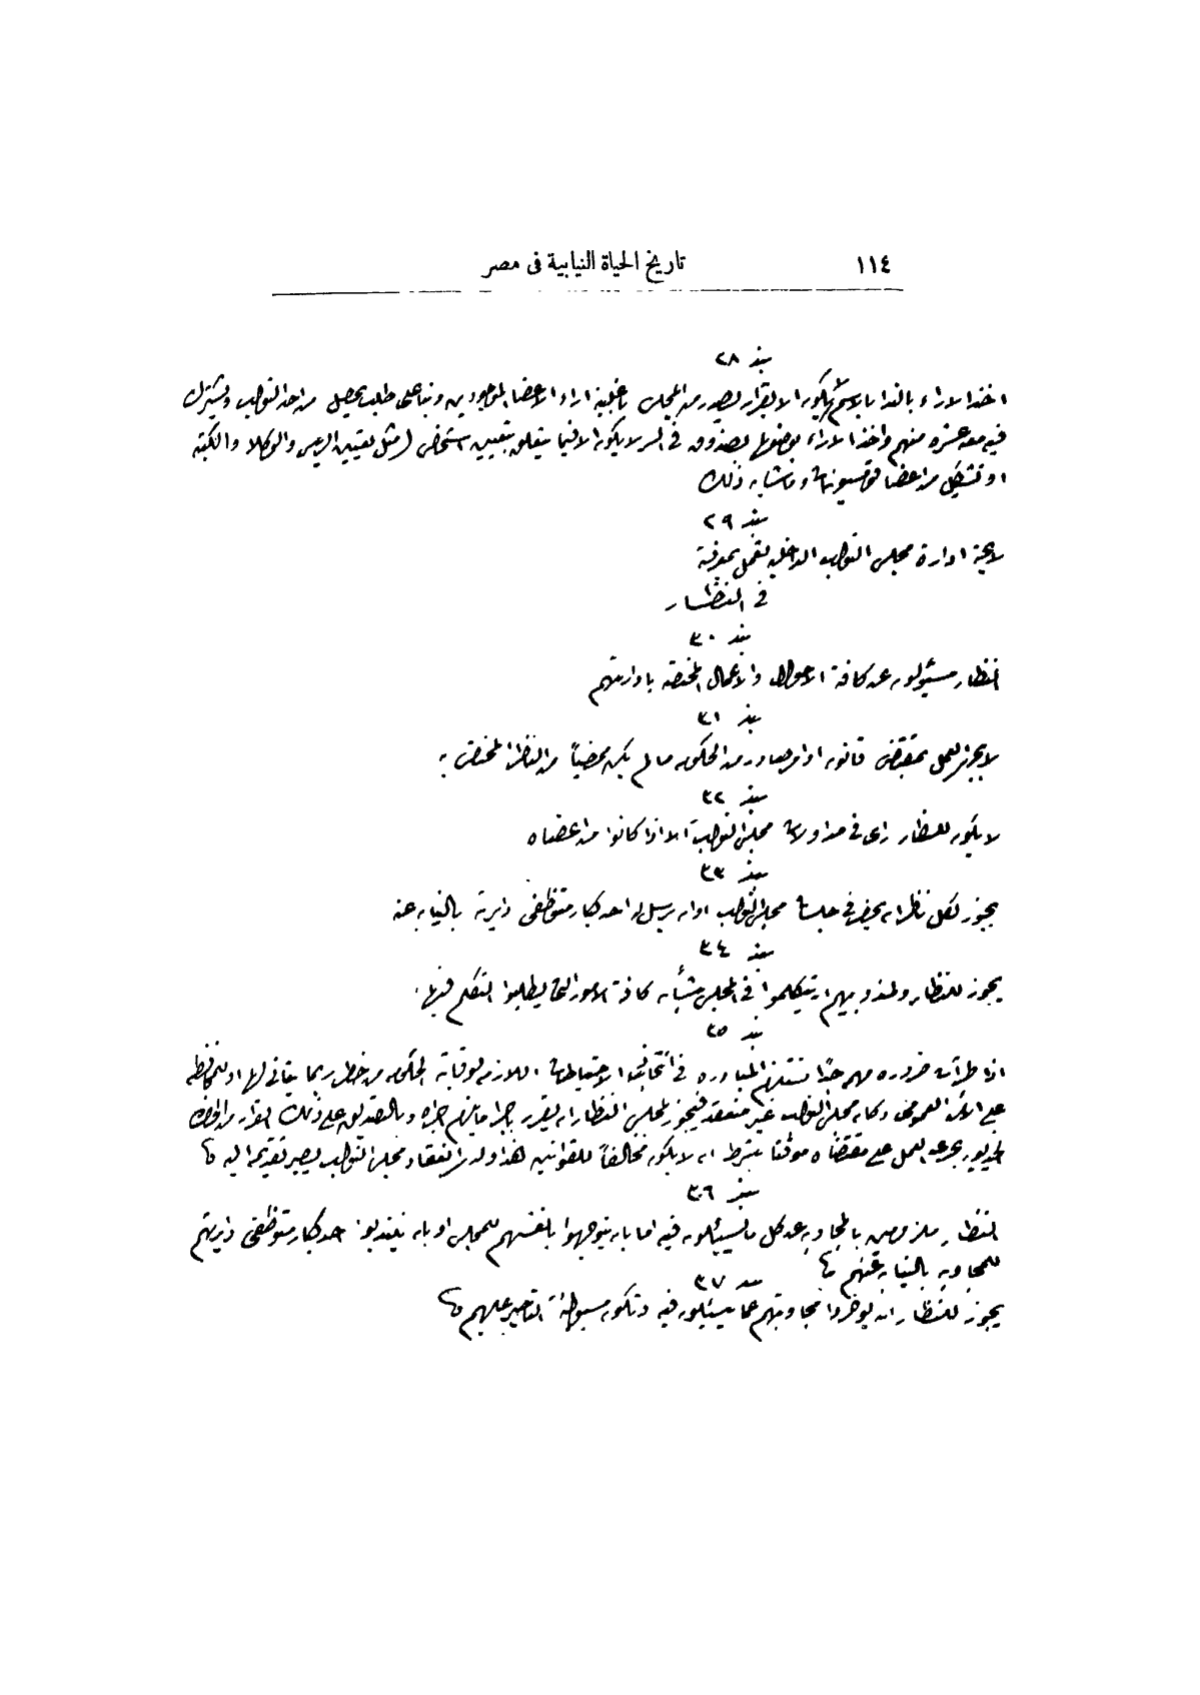 ١١٤ تاريخ الحياة النيابية فى مصر
بند ٢٨
اخذ الاراء بالندا بالاسم لا يكون الا بقرار يصدر من المجلس باغلبية اراء الاعضا الموجودين وبنا على طلب يحصل من احد النواب ويشترك
فيه معه عشره منهم واخذ الاراء بوضعها بصندوق فى السر لا يكون الا فيما يتعلق بتعيين اشخاص مثل تعيين الرييس والوكلا والكتبه
او تشكيل من اعضا قومسيونات وما شابه ذلك
بند ٢٩
لايحة ادارة مجلس النواب الداخليه تعمل بمعرفته
فى النظار
بند ٣٠
النظار مسئولون عن كافة الاحوال والاعمال المختصه باداريتهم
بند ٣١
لا يجوز العمل بمقتضى قانون او امر صادر من الحكومه ما لم يكن ممضياً من الناظر المختص به
بند ٣٢
لا يكون للنظار راى فى مداولات مجلس النواب الا اذا كانوا من اعضاه
بند ٣٣
يجوز لكل ناظر ان يحضر فى جلسات مجلس النواب او ان يرسل احد كبار متوظفى دايرته بالنيابه عنه
بند ٣٤
يجوز للنظار ولمندوبيهم ان يتكلموا فى المجلس بشأن كافة الامور التى يطلبوا التكلم فيها
بند ٣٥
اذا طرأت ضروره مهمه جدًا تستلزم المبادره فى اتخاذ الاحتياطات اللازمه لوقاية الحكومه من خطر ربما يتاتى لها او للمحافظه
على الامن العمومى وكان مجلس النواب غير منعقد فيجوز لمجلس النظار ان يقرر باجرا ما يلزم اجراه وبالتصديق على ذلك القرار من الحضره
الخديويه يجرى العمل على مقتضاه موقتا بشرط ان لا يكون مخالفاً للقوانين هذا ولدى انعقاد مجلس النواب يصير تقديمه اليه
بند ٣٦
النظار ملزومين بالمجاوبه عن كل ما يسئلون فيه اما بان يتوجهوا بانفسهم للمجلس او بان ينتدبوا احد كبار متوظفى دايرتهم
للمجاوبه بالنيابه عنهم
بند ٣٧
يجوز للنظار ان يوخروا مجاوبتهم عما يسئلون فيه وتكون مسئولية التاخير عليهم